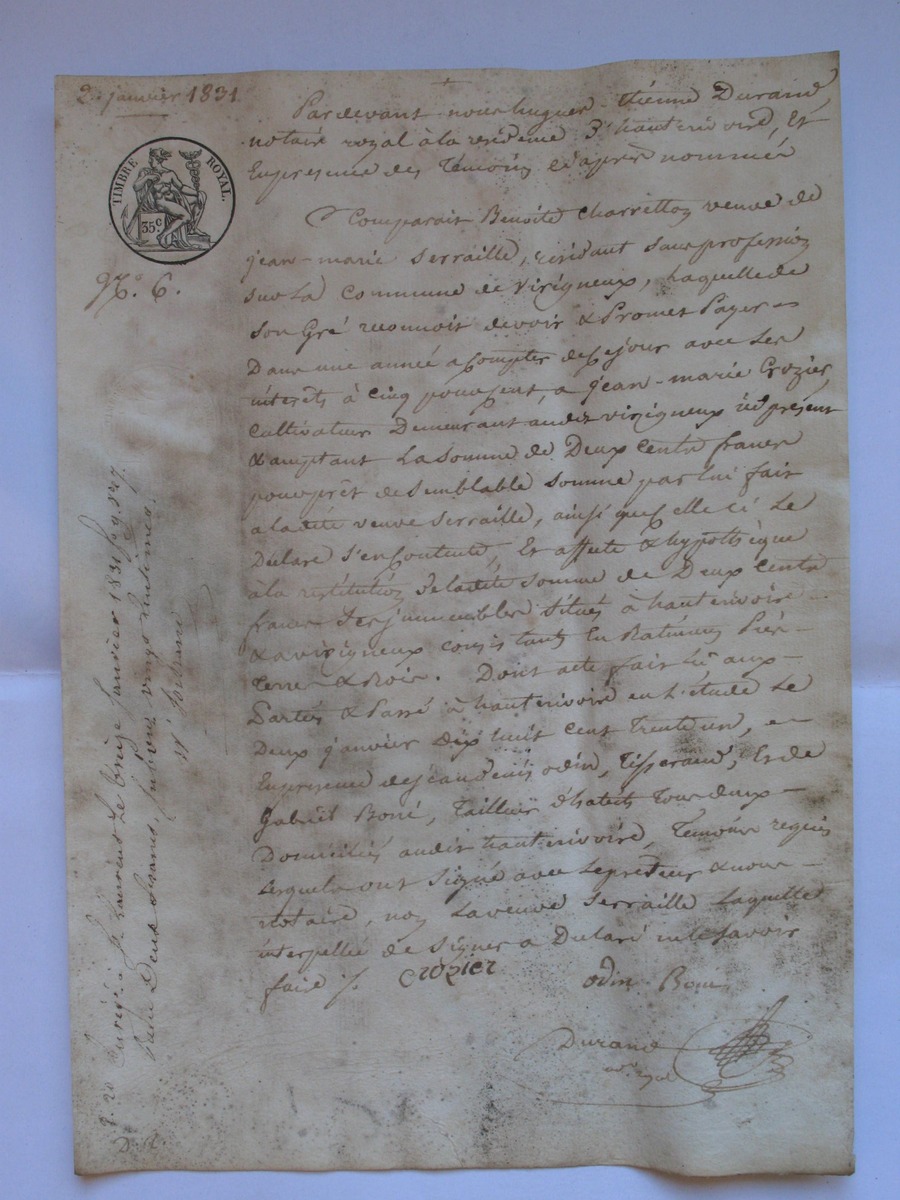 2. janvier 1831
TIMBRE ROYAL.
35c
No. 6.
Pardevant nous hugues-Etienne Durand,
notaire royal à la residence d'hauterivoire, Et
En presence des Temoins cy après nommés
Comparait Benoite Charretton veuve de
jean-marie Serraille, residant sans profession
sur la Commune de Virigneux, Laquelle de
son Gré reconnoit devoir & Promet Payer
Dans une année a compter de ce jour avec Les
interêts à Cinq pour cent, a jean-marie Crozier
Cultivateur Demeurant audit virigneux ici présent
& acceptant La Somme de Deux Cents francs
pour prêt de Semblable Somme par lui fait
a ladite veuve Serraille, ainsi que Celle ci Le
Declare S'en Contente, Et affecte & hypothèque
à la restitution de ladite Somme de Deux Cents
francs Ses immeubles Situés à hauterivoire
& a virigneux consistants En Batimens Prés
Terre & Bois. Dont acte fait Lu aux
Parties & Passé à hauterivoire en L'étude Le
Deux janvier dix huit cent Trente un, en
En presence de jean denis odin, Tisserand, Et de
Gabriel Boni, Tailleur d'habits Tous deux
Domiciliés audit hauterivoire, Temoins requis
Lesquels ont Signé avec Le preteur & nous
notaire, non La veuve Serraille Laquelle
interpellée de Signer a Declaré ne le Savoir
faire ./.
Crozier
odin Boni
Durand
nore royal
Enregé à St Laurent Le onze Janvier 1831
Deux francs, Subvon vingt centimes.